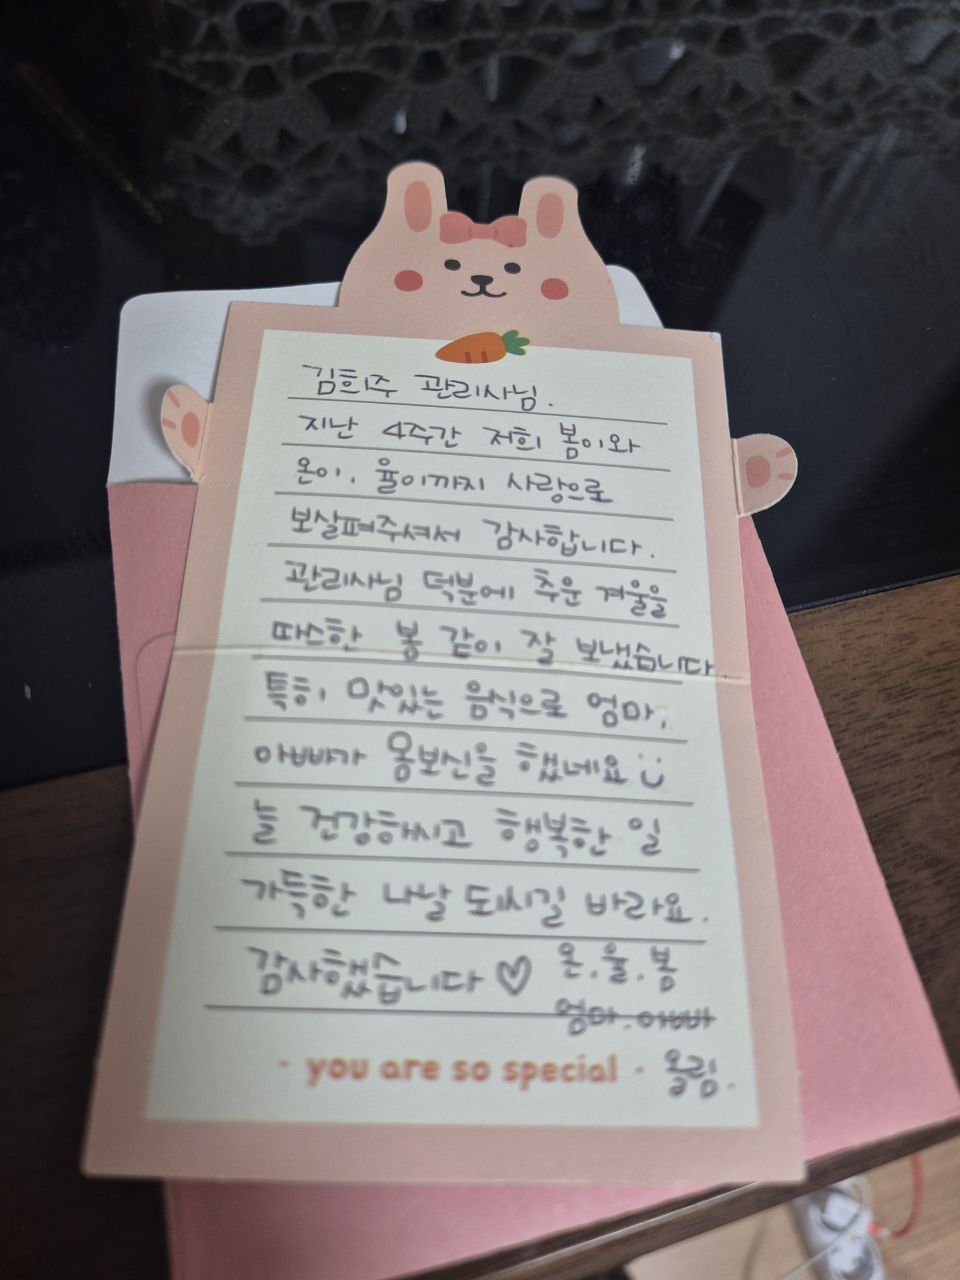 김희주 관리사님.
지난 4주간 저희 봄이와
온이, 율이까지 사랑으로
보살펴주셔서 감사합니다.
관리사님 덕분에 추운 겨울을
따스한 봄 같이 잘 보냈습니다.
특히 맛있는 음식으로 엄마,
아빠가 몸보신을 했네요
늘 건강하시고 행복한 일
가득한 나날 되시길 바라요.
감사했습니다 ♡ 온.율.봄
엄마.아빠
- you are so special - 올림.